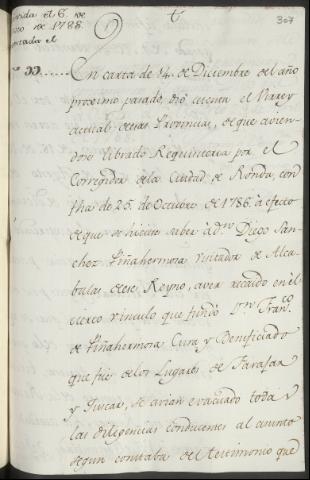 307
de 1788.
En carta de 14. de Diciembre del año
proximo pasado, dió cuenta el Virrey
actual de esas Provincias, de que avien
dose librado Requisitoria por el
Corregidor de la Ciudad de Ronda, con
fha de 25. de Octubre de 1786. à efecto
de que se hiciese saber à dⁿ Diego San
chez Piñahermosa Visitador de Alca
balas de ese Reyno, aver recaido en èl
el cerco vinculo que fundó dⁿ Fran.co
de Piñahermosa Cura y Beneficiado
que fué de los Lugares de Farajan
y Juzcar, se avian evacuado todas
las diligencias conducentes al asunto
segun constaba del testimonio que